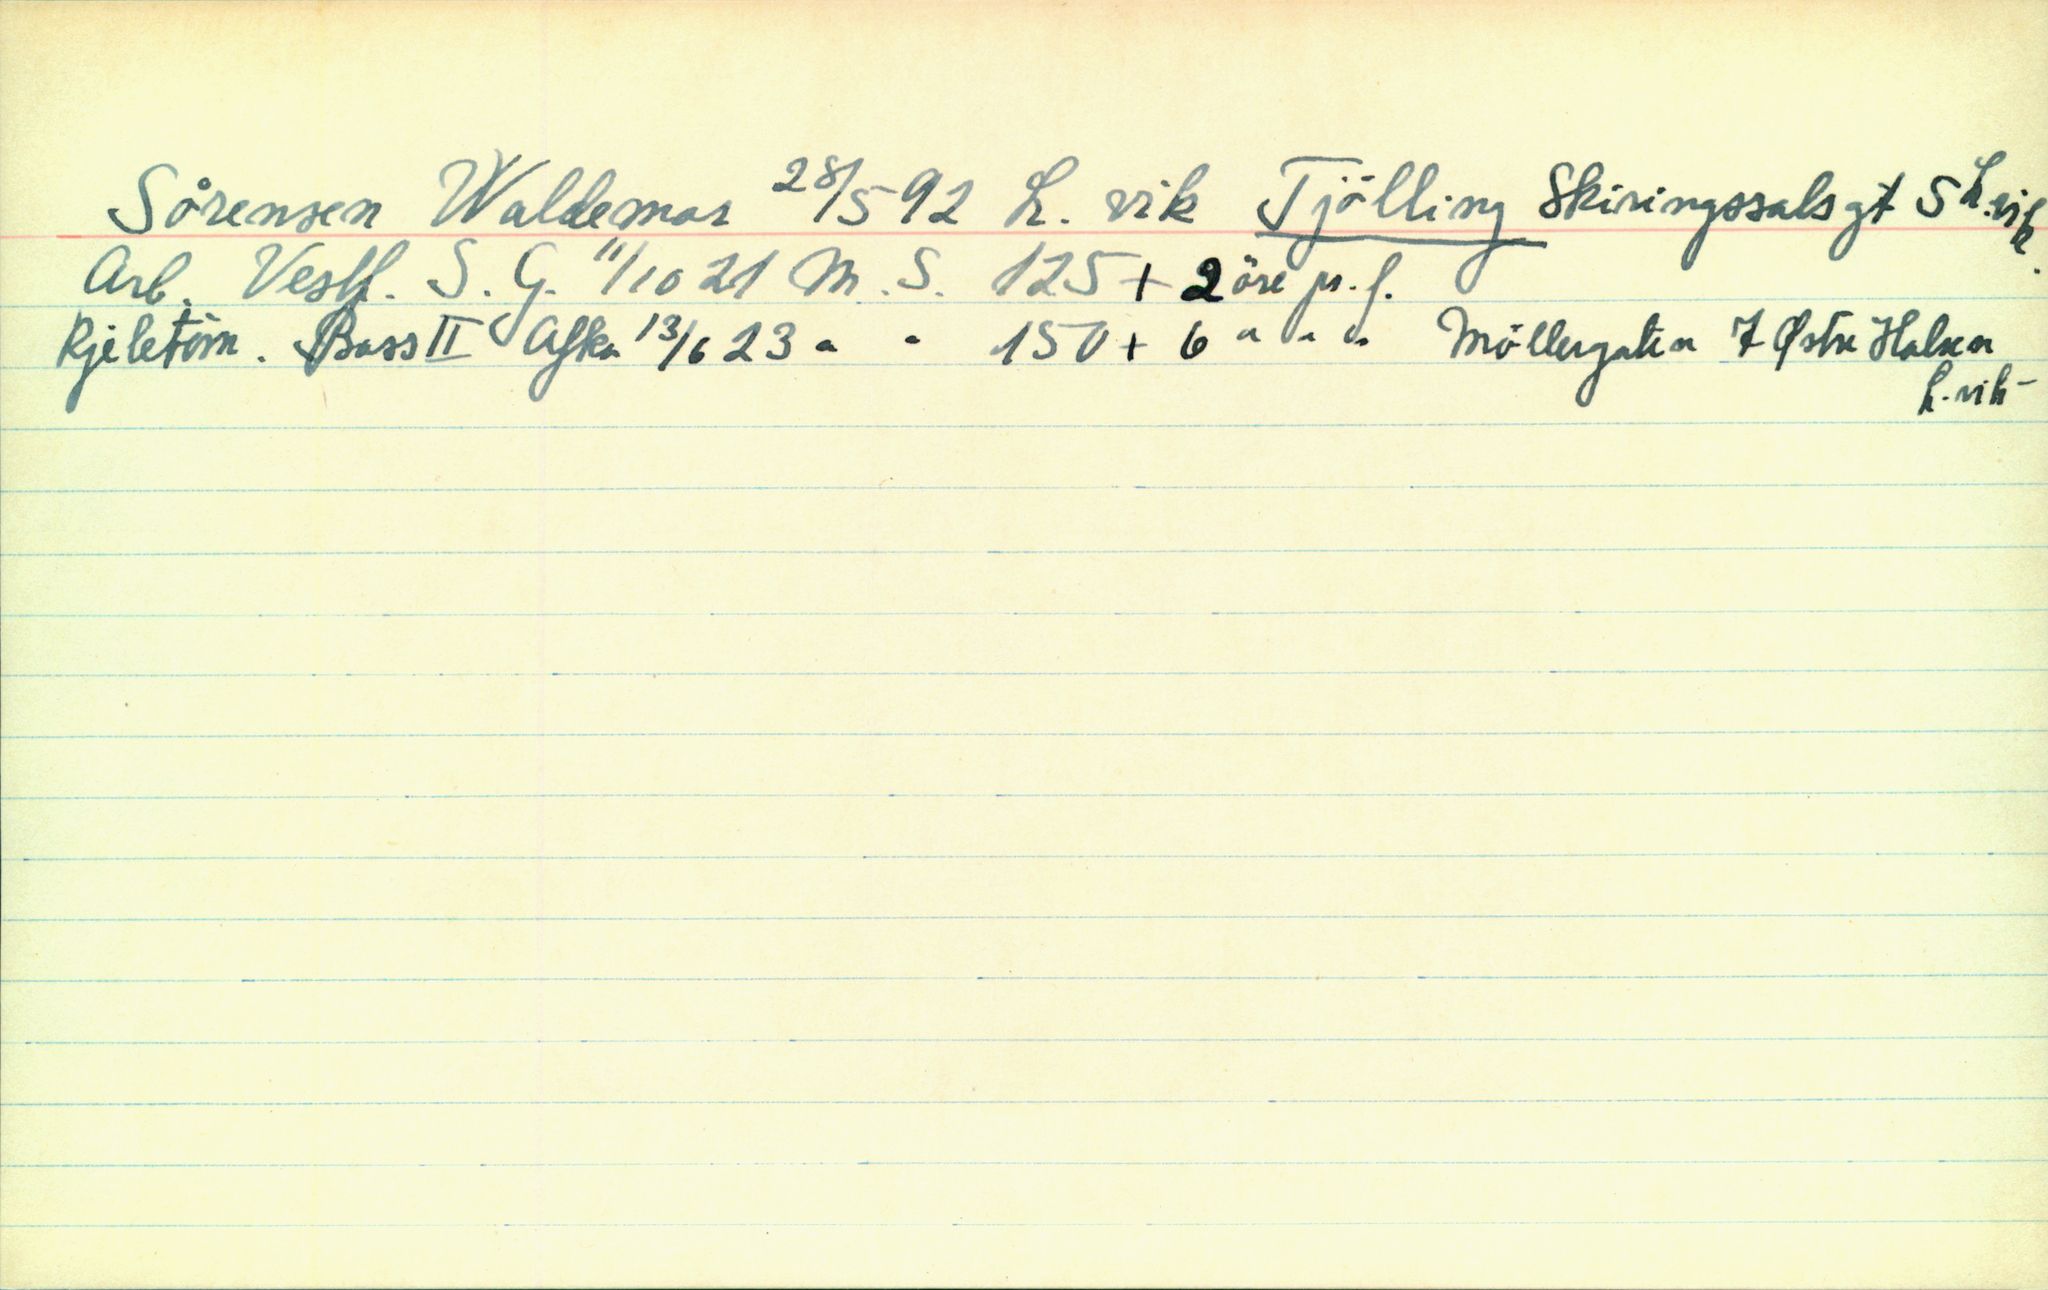 Sörensen Waldemar 28/5 92 L. vik Tjölling Skiringssalsgt 5 L.vik.
Arb. Vestf. S. G. 11/10 21 M. S. 125 + 2 öre pr. f.
Kjeletörn. Bass II Afka 13/6 23 " " 150 + 6 " " " Möllergaten 7 Østre Halsen
L. vik